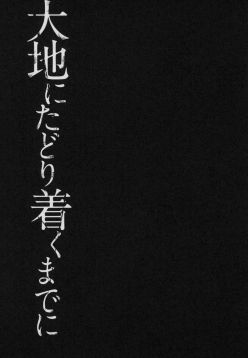 大地にたどり着くまでに